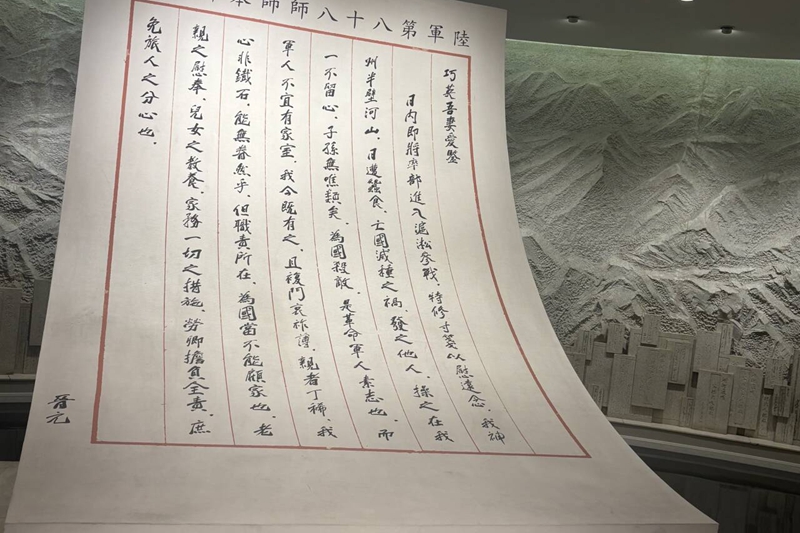 陸軍第八十八師師本
巧英吾妻愛鑒
日內即將率部進入滬淞參戰，特修寸箋以慰遠念。我神
州半壁河山，日遭蠶食，亡國滅種之禍，發之他人，操之在我
一不留心，子孫無噍類矣。為國殺敵，是革命軍人素志也，而
軍人不宜有家室，我今既有之，且複門衰祚薄，親者丁稀，我
心非鐵石，能無眷然乎 但職責所在，為國當不能顧家也。老
親之慰奉，兒女之教養，家務一切之措施，勞卿擔負全責，庶
免旅人之分心也。
晉元